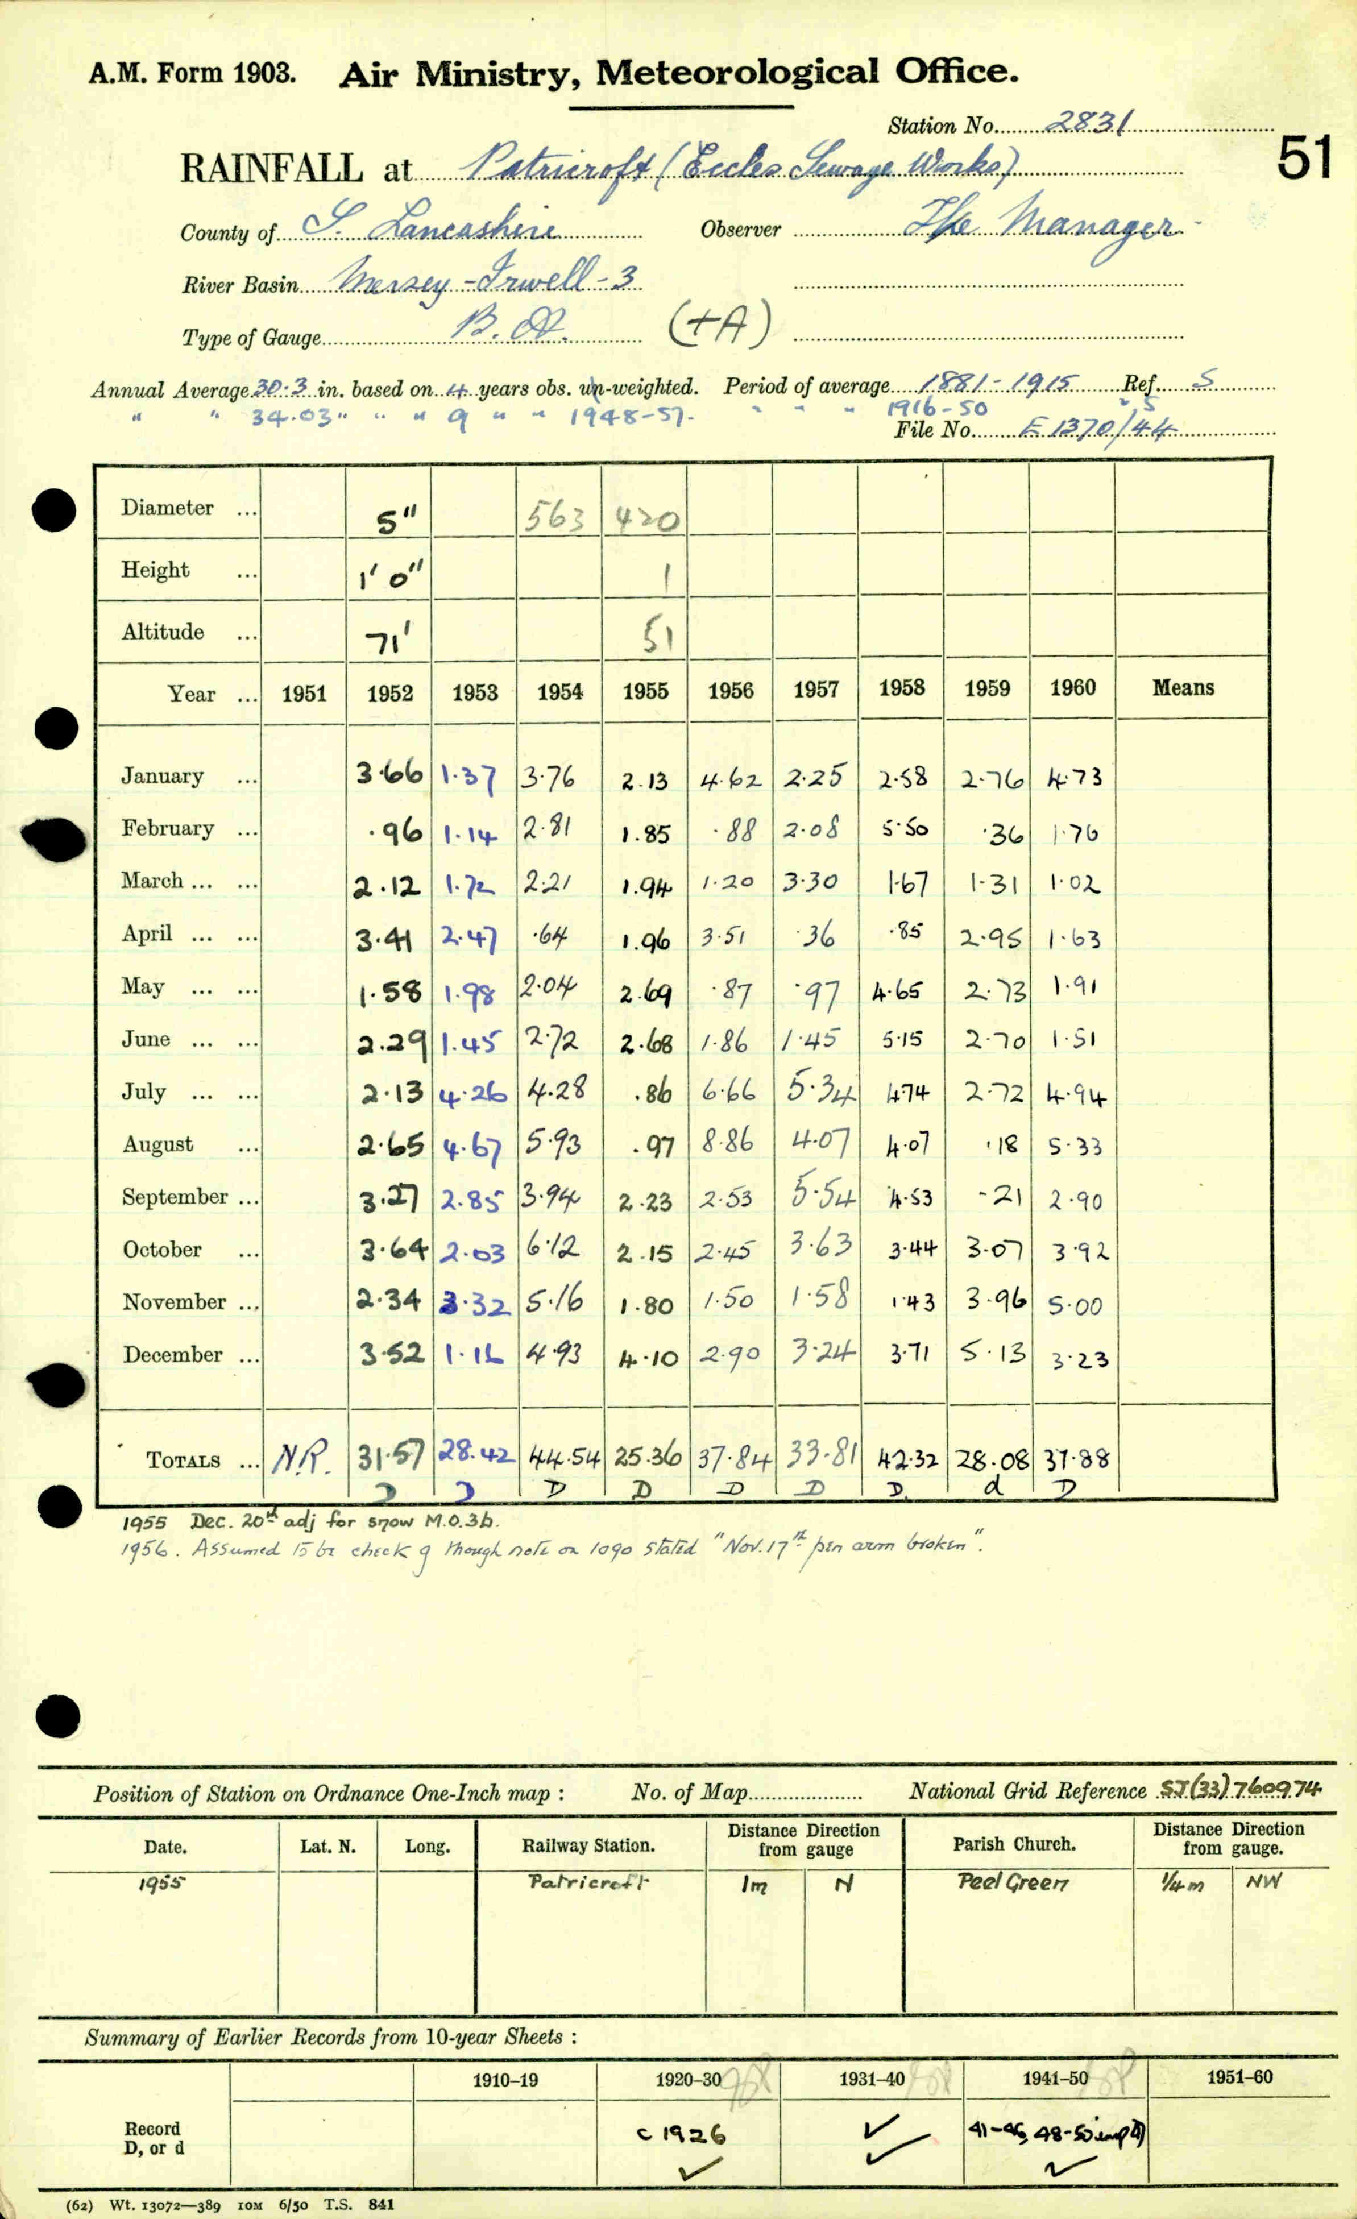 A.M. Form 1903. Air Ministry, Meteorological Office.
Station No. 2831
51
RAINFALL at Patricroft (Eccles Sewage Works)
County of S. Lancashire Observer The Manager
River Basin Mersey - Irwell - 3
Type of Gauge B. (+A)
Annual Average 30.3 in. based on 4 years obs. un-weighted. Period of average 1881-1915 Ref. S
" " 34.03 " " " 9 " " 1948-57. " " " 1916-50 " S
File No. E 1370/44
Diameter ... 5" 563 420
Height ... 1' 0" 1
Altitude ... 71' 51
Year ... 1951 1952 1953 1954 1955 1956 1957 1958 1959 1960 Means
January ... 3.66 1.37 3.76 2.13 4.62 2.25 2.58 2.76 4.73
February ... .96 1.14 2.81 1.85 .88 2.08 5.50 .36 1.76
March ... ... 2.12 1.72 2.21 1.94 1.20 3.30 1.67 1.31 1.02
April ... ... 3.41 2.47 .64 1.96 3.51 .36 .85 2.95 1.63
May ... ... 1.58 1.98 2.04 2.69 .87 .97 4.65 2.73 1.91
June ... ... 2.29 1.45 2.72 2.68 1.86 1.45 5.15 2.70 1.51
July ... ... 2.13 4.26 4.28 .86 6.66 5.34 4.74 2.72 4.94
August ... 2.65 4.67 5.93 .97 8.86 4.07 4.07 .18 5.33
September ... 3.27 2.85 3.94 2.23 2.53 5.54 4.53 .21 2.90
October ... 3.64 2.03 6.12 2.15 2.45 3.63 3.44 3.07 3.92
November ... 2.34 3.32 5.16 1.80 1.50 1.58 1.43 3.96 5.00
December ... 3.52 1.16 4.93 4.10 2.90 3.24 3.71 5.13 3.23
TOTALS ... N.R. 31.57 28.42 44.54 25.36 37.84 33.81 42.32 28.08 37.88
D D D D D D D. d D
1955 Dec. 20th adj for snow M.O.3b.
1956. Assumed to be check g though note on 1090 stated "Nov. 17th pen arm broken".
Position of Station on Ordnance One-Inch map : No. of Map National Grid Reference SJ(33)760974
Date. Lat. N. Long. Railway Station. Distance from gauge Direction Parish Church. Distance from gauge. Direction
1955 Patricroft 1m N Peel Green 1/4 m NW
Summary of Earlier Records from 10-year Sheets :
1910-19 1920-30 1931-40 1941-50 1951-60
Record D, or d c 1926 ✓ ✓ ✓ 41-46, 48-50 ✓
(62) Wt. 13072—389 10M 6/50 T.S. 841